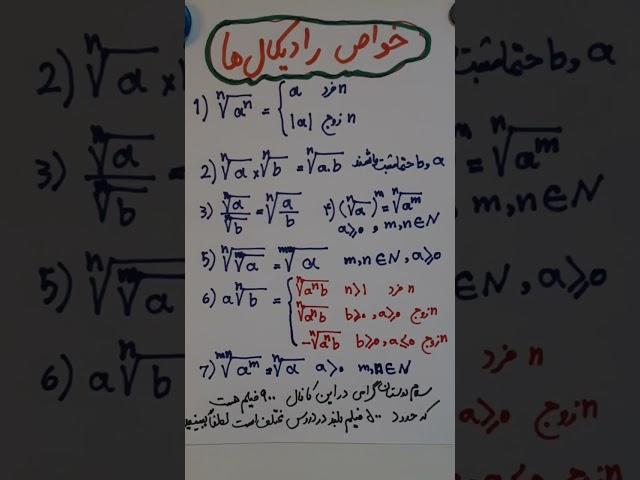 خواص رادیکال‌ها
1) ⁿ√aⁿ = { a n فرد
|a| n زوج
2) ⁿ√a × ⁿ√b = ⁿ√a.b a و b حتما مثبت باشند
3) ⁿ√a / ⁿ√b = ⁿ√(a/b) ۴) (ⁿ√a)ᵐ = ⁿ√aᵐ
a≥0 , m,n∈N
5) ⁿ√ᵐ√a = ᵐⁿ√a m,n∈N , a≥0
6) a ⁿ√b = { ⁿ√aⁿb n>1 n فرد
ⁿ√aⁿb b≥0 , a≥0 n زوج
-ⁿ√aⁿb b≥0 , a≤0 n زوج
7) ᵐⁿ√aᵐ = ⁿ√a a≥0 m,n∈N
سلام دوستان گرامی در این کانال ۹۰۰ فیلم هست
که حدود ۵۰۰ فیلم بلند در دروس مختلف است لطفا ببینید